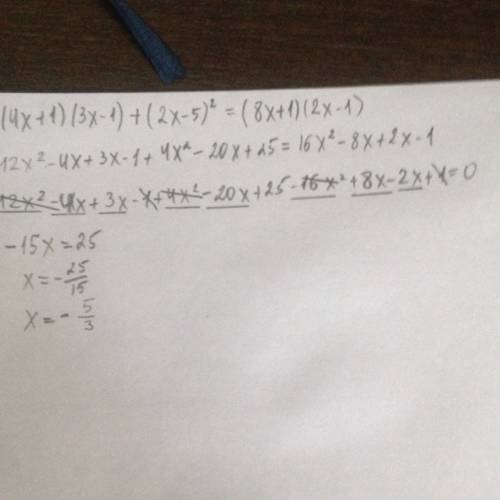 (4x+1)(3x-1)+(2x-5)²=(8x+1)(2x-1)
12x²-4x+3x-1+4x²-20x+25=16x²-8x+2x-1
12x²-4x+3x-1+4x²-20x+25-16x²+8x-2x+1=0
-15x=25
x=-25/15
x=-5/3